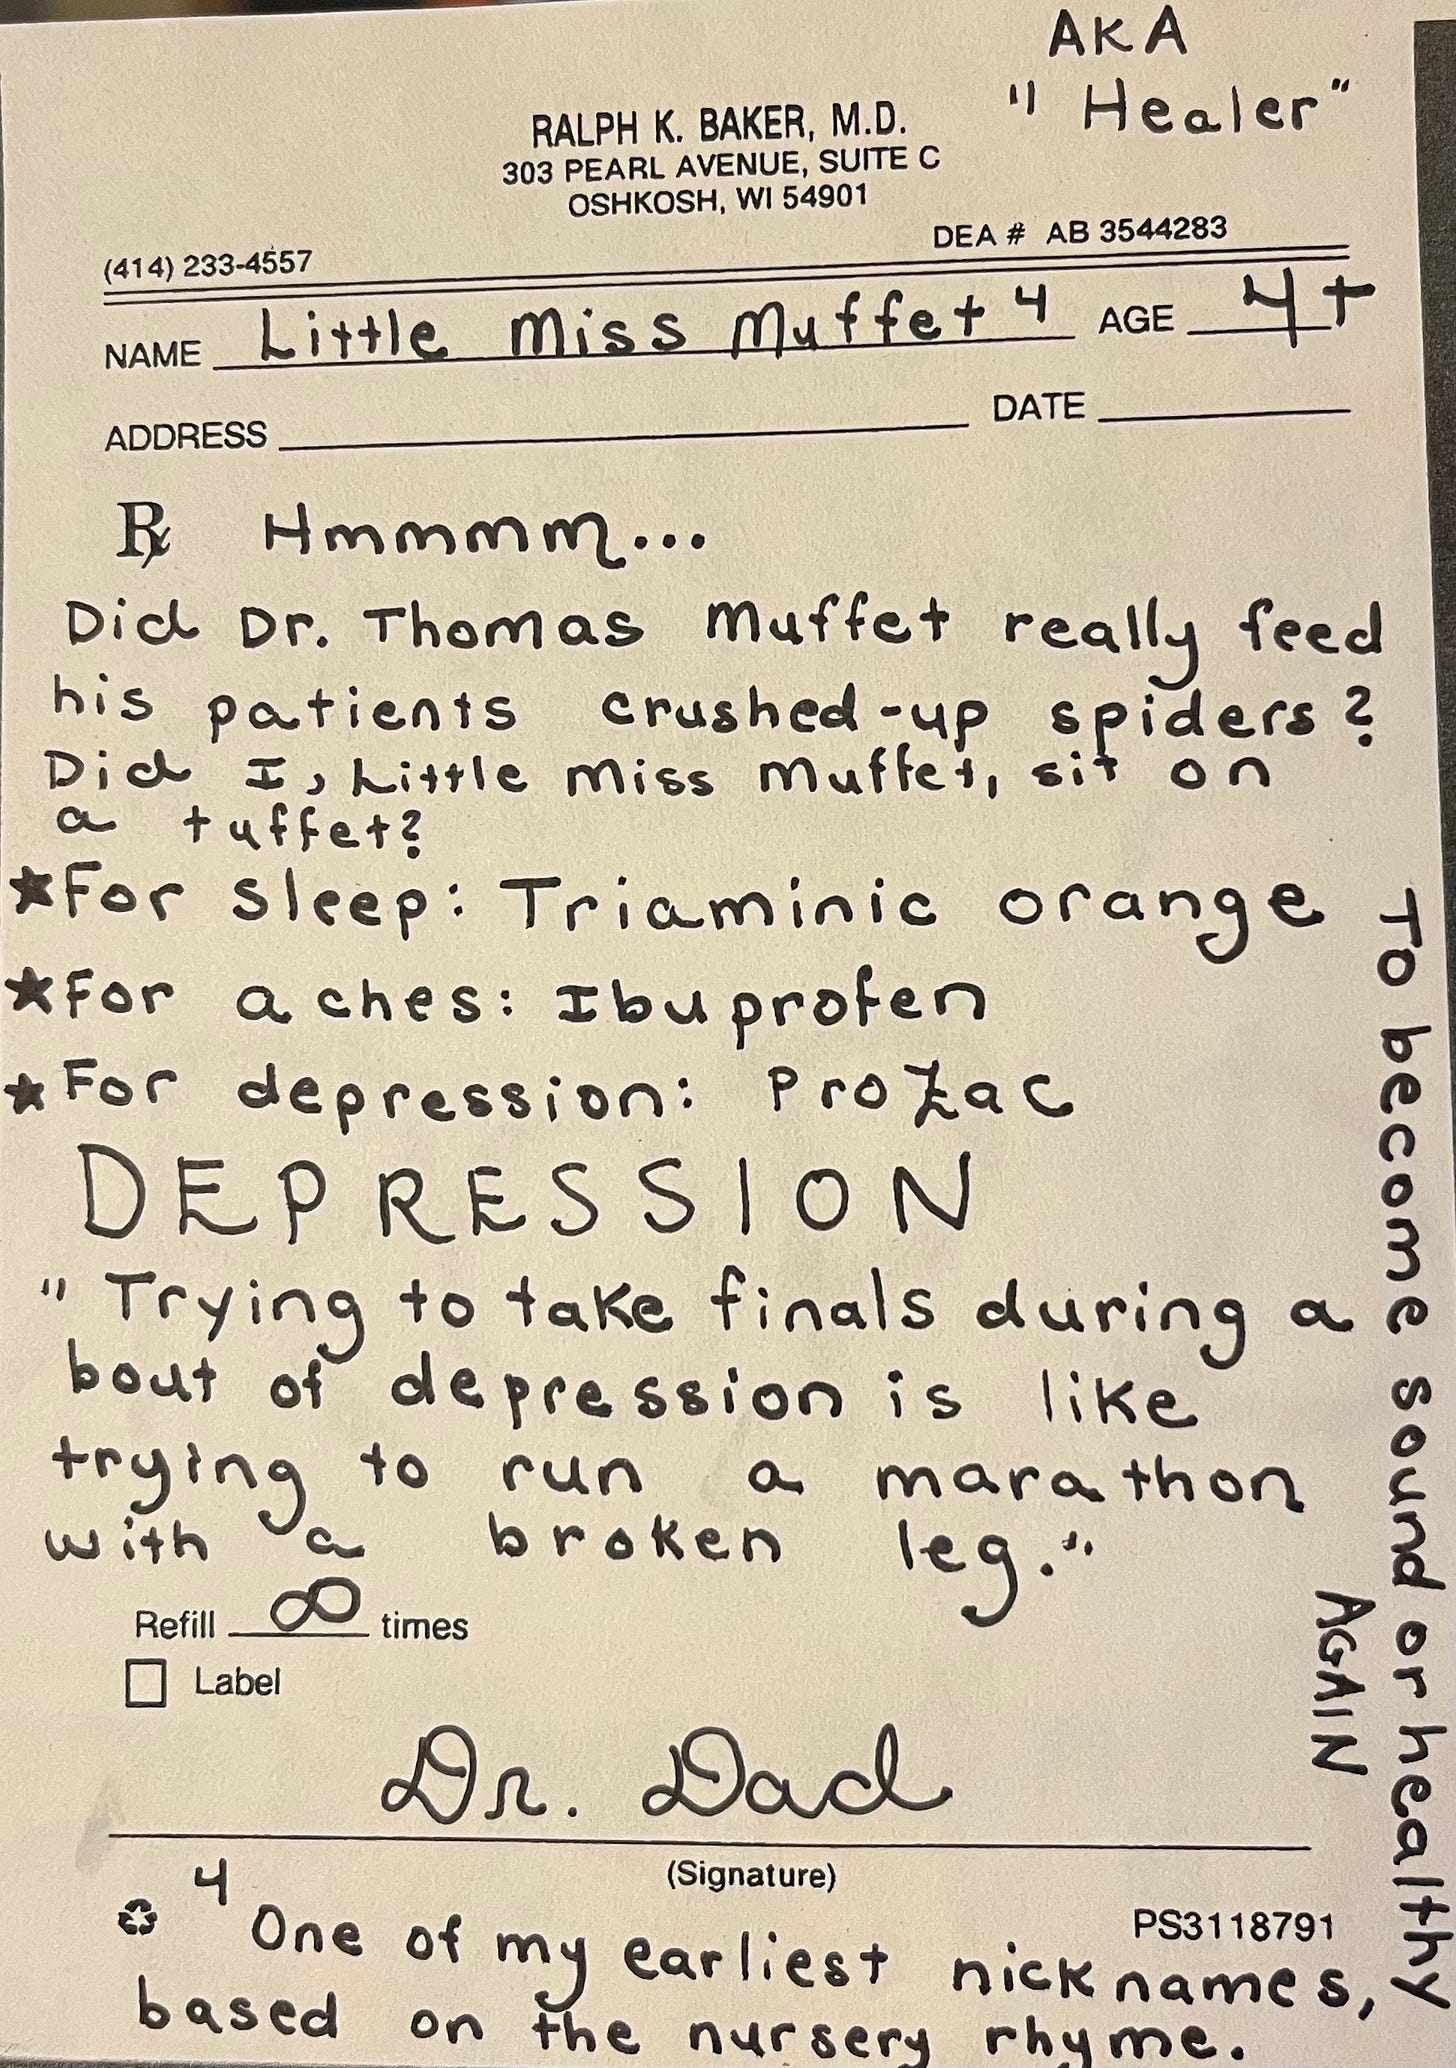 AKA
" Healer"
RALPH K. BAKER, M.D.
303 PEARL AVENUE, SUITE C
OSHKOSH, WI 54901
DEA # AB 3544283
(414) 233-4557
NAME Little Miss Muffet 4 AGE 4+
ADDRESS DATE
Rx Hmmmm...
Did Dr. Thomas Muffet really feed
his patients crushed-up spiders?
Did I, Little Miss Muffet, sit on
a tuffet?
★For sleep: Triaminic orange
★For aches: Ibuprofen
★For depression: Prozac
DEPRESSION
"Trying to take finals during a
bout of depression is like
trying to run a marathon
with a broken leg."
To become sound or healthy
AGAIN
Refill ∞ times
Label
Dr. Dad
(Signature)
PS3118791
4 One of my earliest nicknames,
based on the nursery rhyme.